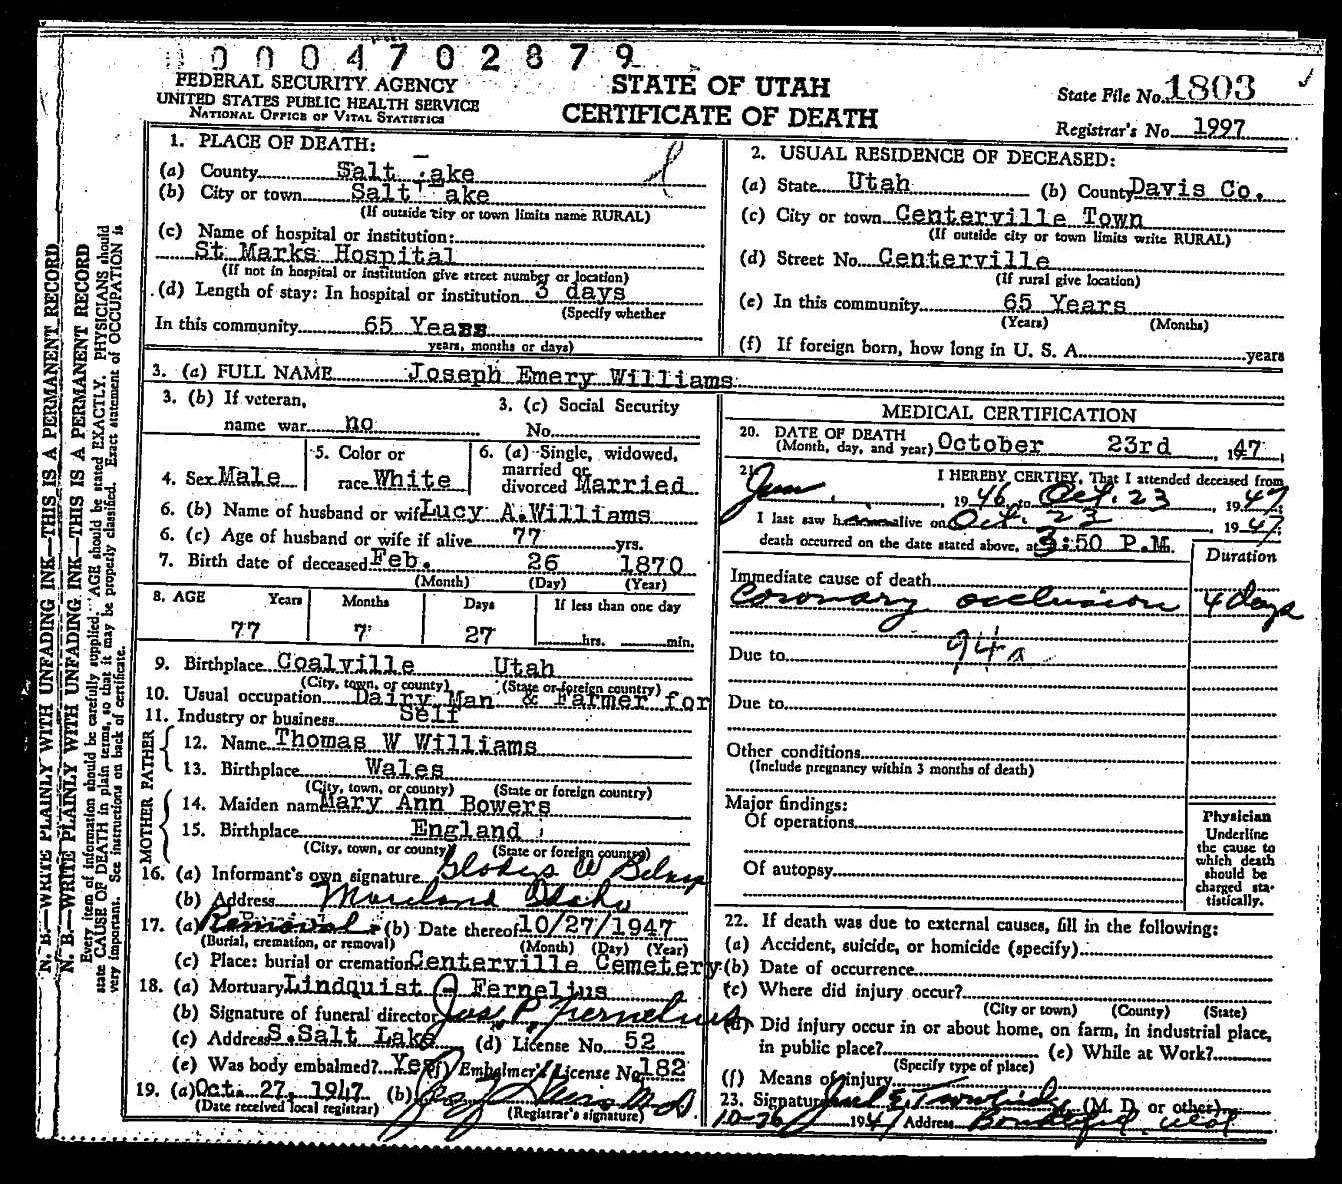 0004702879
FEDERAL SECURITY AGENCY
UNITED STATES PUBLIC HEALTH SERVICE
NATIONAL OFFICE OF VITAL STATISTICS
STATE OF UTAH
CERTIFICATE OF DEATH
State File No. 1803
Registrar's No. 1997
1. PLACE OF DEATH:
(a) County Salt Lake
(b) City or town Salt Lake
(If outside city or town limits name RURAL)
(c) Name of hospital or institution:
St Marks Hospital
(If not in hospital or institution give street number or location)
(d) Length of stay: In hospital or institution 3 days
(Specify whether
In this community 65 Years
years, months or days)
2. USUAL RESIDENCE OF DECEASED:
(a) State Utah (b) County Davis Co.
(c) City or town Centerville Town
(If outside city or town limits write RURAL)
(d) Street No. Centerville
(If rural give location)
(e) In this community 65 Years
(Years) (Months)
(f) If foreign born, how long in U. S. A. years
3. (a) FULL NAME Joseph Emery Williams
3. (b) If veteran, name war no
3. (c) Social Security No.
4. Sex Male
5. Color or race White
6. (a) Single, widowed, married or divorced Married
6. (b) Name of husband or wife Lucy A.Williams
6. (c) Age of husband or wife if alive 77 yrs.
7. Birth date of deceased Feb. 26 1870
(Month) (Day) (Year)
8. AGE Years Months Days If less than one day
77 7 27 hrs. min.
9. Birthplace Coalville Utah
(City, town, or county) (State or foreign country)
10. Usual occupation Dairy Man & Farmer for
11. Industry or business Self
FATHER
12. Name Thomas W Williams
13. Birthplace Wales
(City, town, or county) (State or foreign country)
MOTHER
14. Maiden name Mary Ann Bowers
15. Birthplace England
(City, town, or county) (State or foreign country)
16. (a) Informant's own signature Gladys W Belnap
(b) Address Moreland Idaho
17. (a) Removal (b) Date thereof 10/27/1947
(Burial, cremation, or removal) (Month) (Day) (Year)
(c) Place: burial or cremation Centerville Cemetery
18. (a) Mortuary Lindquist - Fernelius
(b) Signature of funeral director Jos. P. Fernelius
(c) Address S.Salt Lake (d) License No. 52
(e) Was body embalmed? Yes (f) Embalmer's License No. 182
19. (a) Oct. 27, 1947 (b)
(Date received local registrar) (Registrar's signature)
MEDICAL CERTIFICATION
20. DATE OF DEATH
(Month, day, and year) October 23rd, 1947
21. I HEREBY CERTIFY, That I attended deceased from
Jan, 1946, to Oct. 23, 1947
I last saw him alive on Oct. 23 1947;
death occurred on the date stated above, at 3:50 P.M.
Duration
Immediate cause of death
Coronary occlusion 4 days
94a
Due to
Due to
Other conditions
(Include pregnancy within 3 months of death)
Major findings:
Of operations
Of autopsy
Physician
Underline
the cause to
which death
should be
charged sta-
tistically.
22. If death was due to external causes, fill in the following:
(a) Accident, suicide, or homicide (specify)
(b) Date of occurrence
(c) Where did injury occur?
(City or town) (County) (State)
(d) Did injury occur in or about home, on farm, in industrial place,
in public place? (e) While at Work?
(Specify type of place)
(f) Means of injury
23. Signature (M. D. or other)
10-26 1947 Address Bountiful, Utah
N. B.—WRITE PLAINLY WITH UNFADING INK—THIS IS A PERMANENT RECORD
N. B.—WRITE PLAINLY WITH UNFADING INK—THIS IS A PERMANENT RECORD
Every item of information should be carefully supplied. AGE should be stated EXACTLY. PHYSICIANS should
state CAUSE OF DEATH in plain terms, so that it may be properly classified. Exact statement of OCCUPATION is
very important. See instructions on back of certificate.